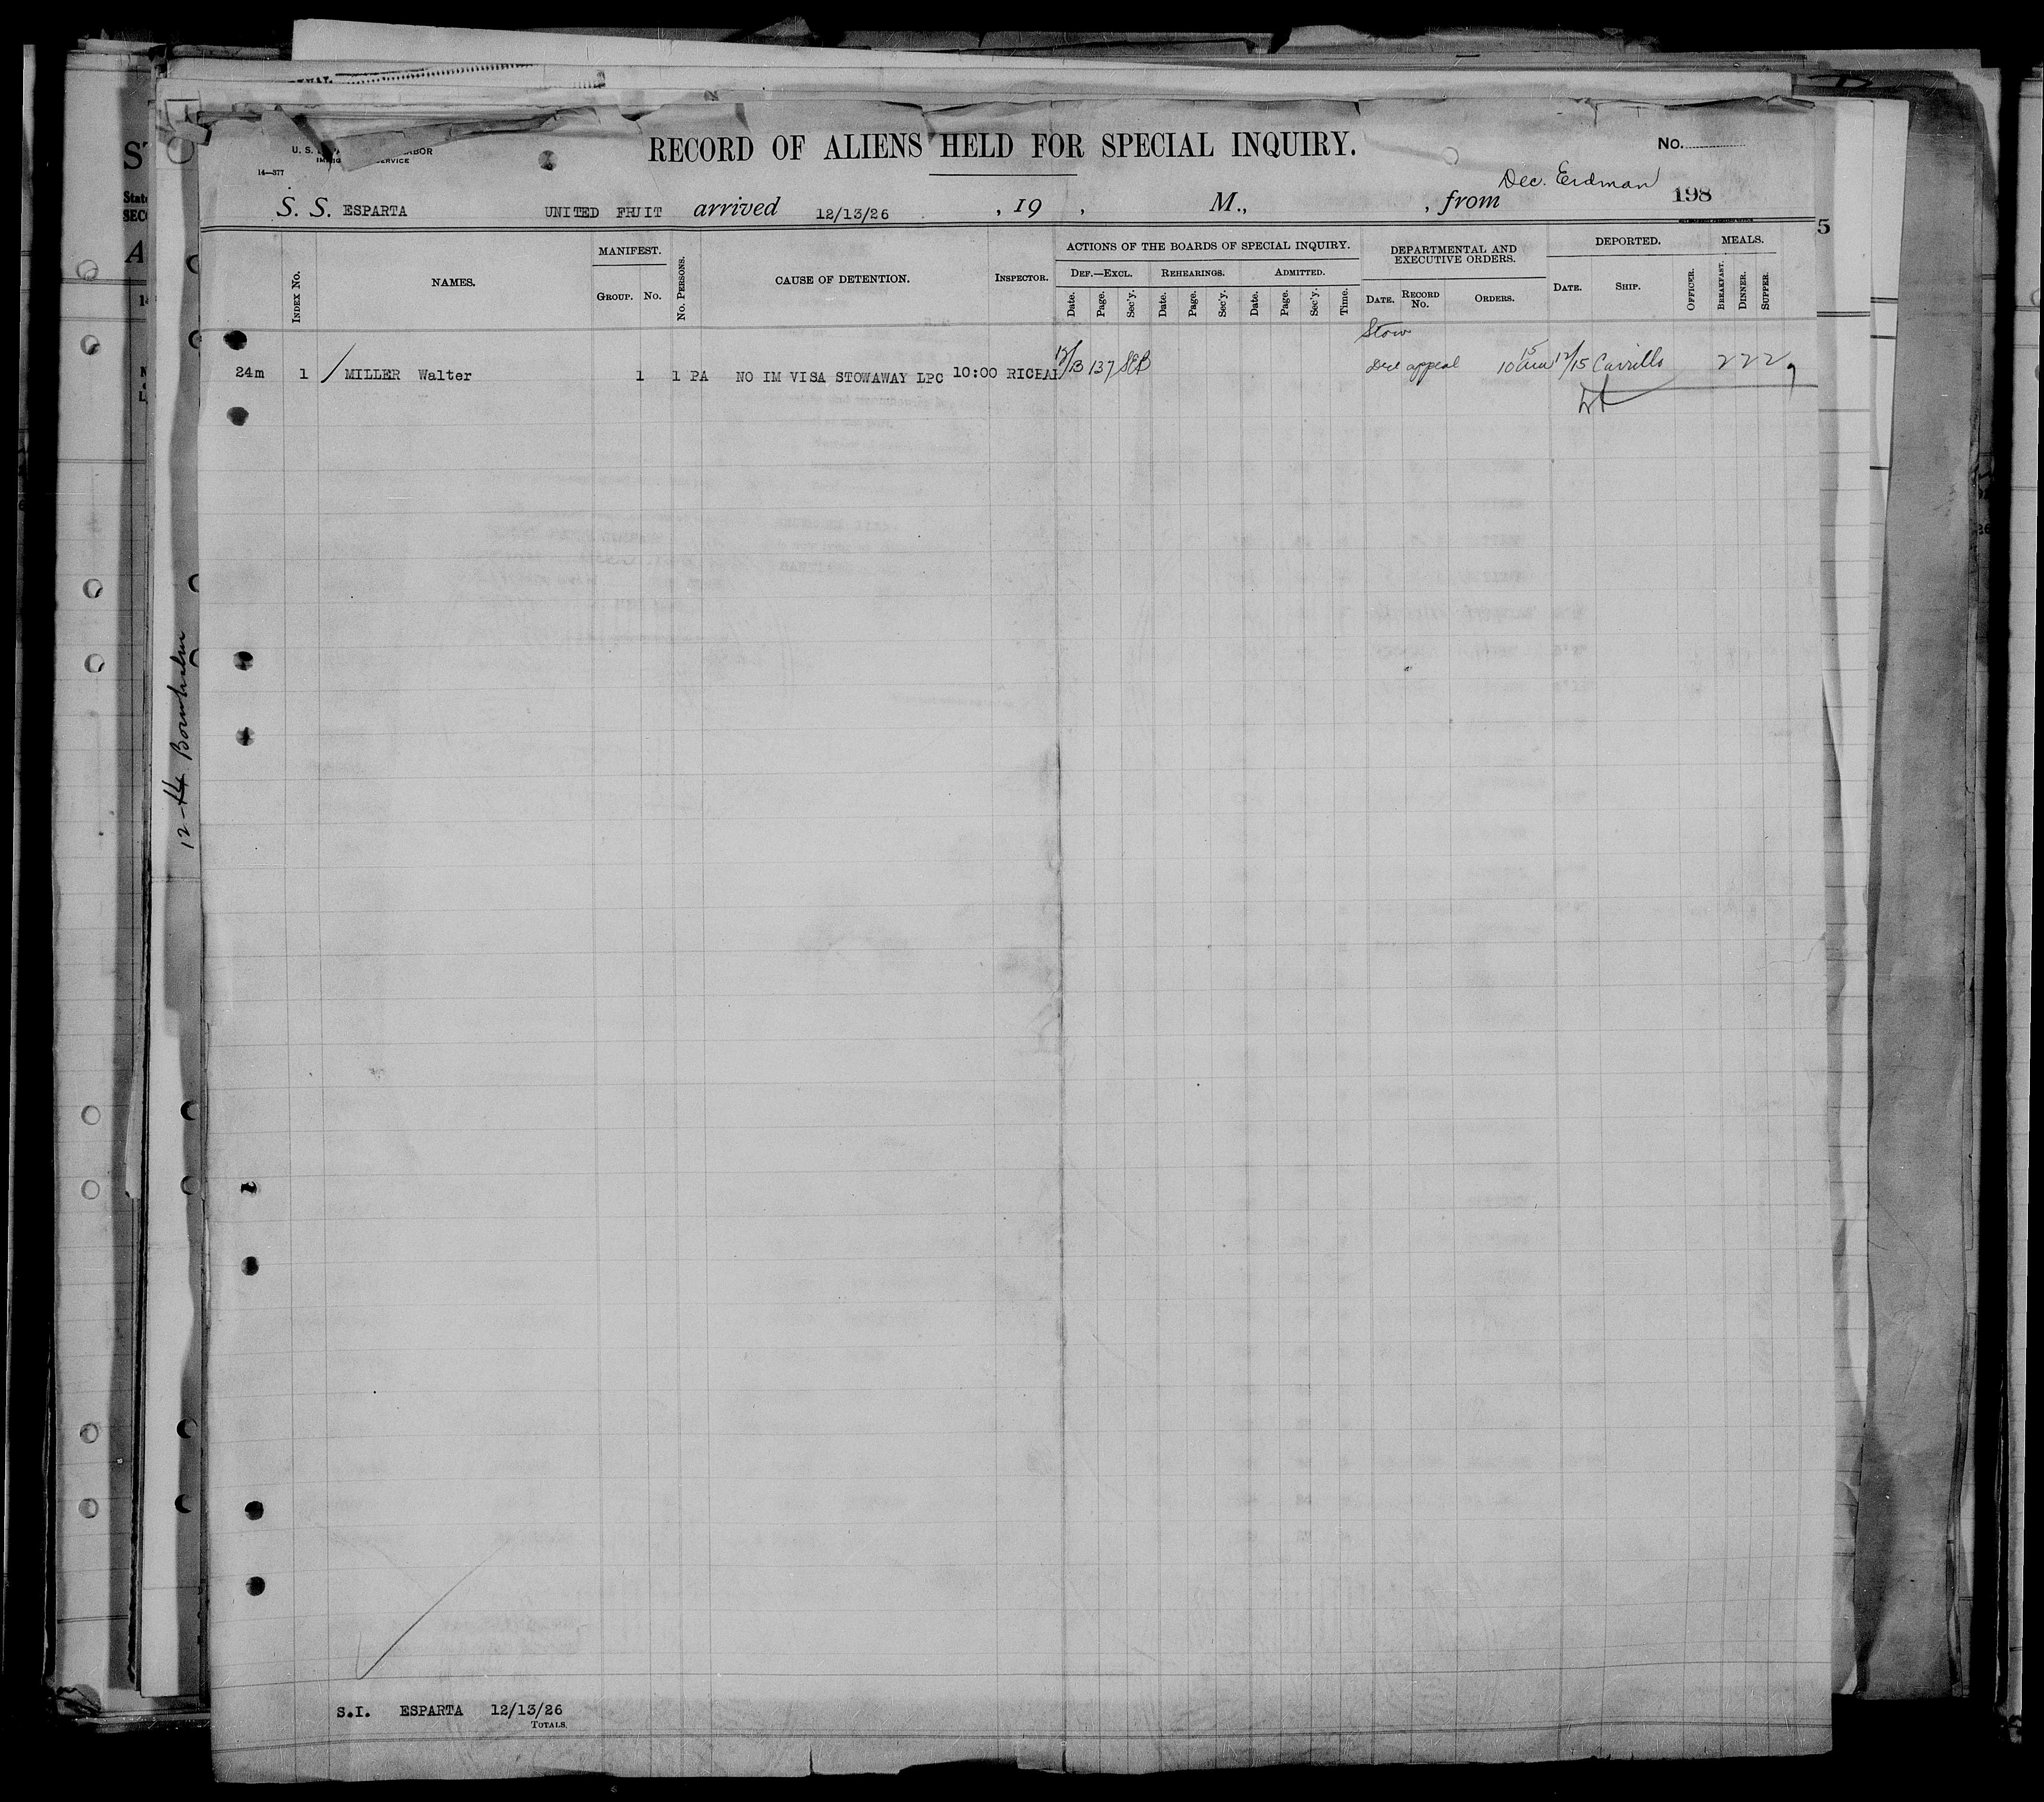 RECORD OF ALIENS HELD FOR SPECIAL INQUIRY.
No.
14—377
Dec. Erdman
198
S. S. ESPARTA UNITED FRUIT arrived 12/13/26 , 19 , M., , from
5
INDEX NO.
NAMES.
MANIFEST.
GROUP. NO.
NO. PERSONS.
CAUSE OF DETENTION.
INSPECTOR.
ACTIONS OF THE BOARDS OF SPECIAL INQUIRY.
DEF.—EXCL. REHEARINGS. ADMITTED.
Date. Page. Sec'y. Date. Page. Sec'y. Date. Page. Sec'y. Time.
DEPARTMENTAL AND
EXECUTIVE ORDERS.
DATE. RECORD NO. ORDERS.
DEPORTED.
DATE. SHIP. OFFICER.
MEALS.
BREAKFAST. DINNER. SUPPER.
Stow
24m 1 MILLER Walter 1 1 PA NO IM VISA STOWAWAY LPC 10:00 137 appeal 12/15 Carrillo 2 2 2 9
12-14
S.I. ESPARTA 12/13/26
TOTALS.